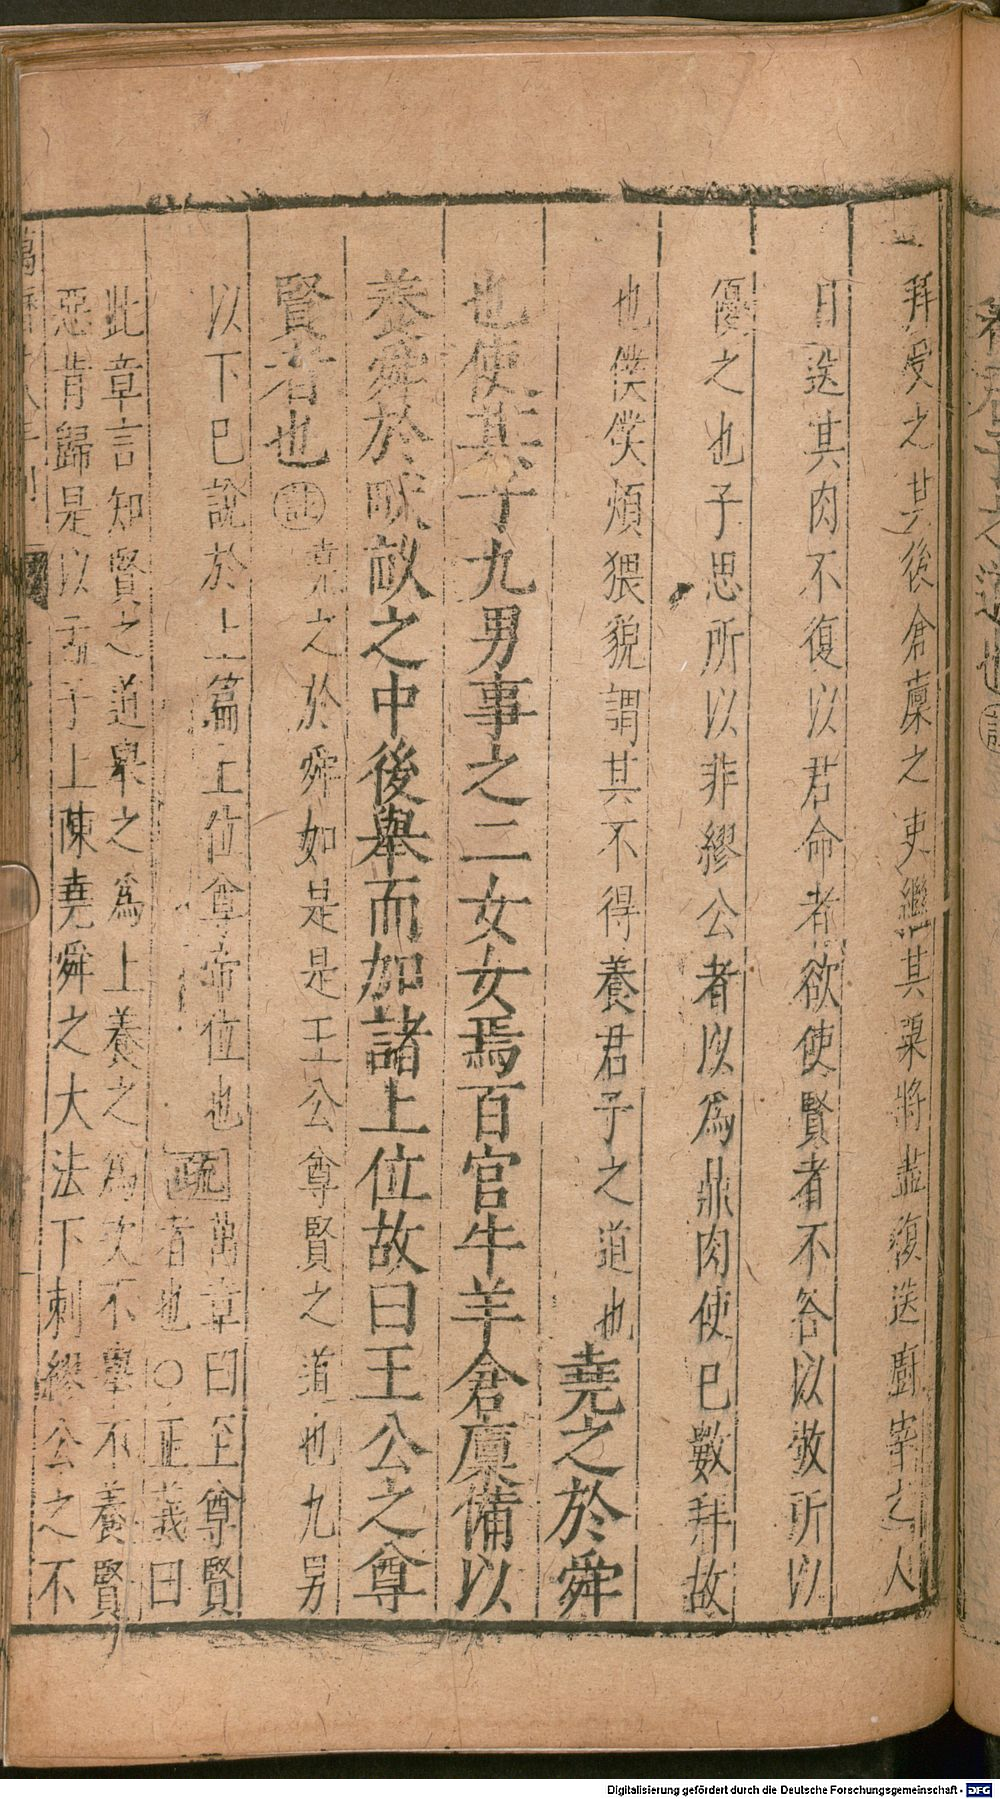 拜受之其後倉廩之吏繼其粟將盡復送廚宰之人
日送其肉不復以君命者欲使賢者不答以敬所以
優之也子思所以非繆公者以爲鼎肉使已數拜故
也僕僕煩猥貌謂其不得養君子之道也堯之於舜
也使其子九男事之二女女焉百官牛羊倉廩備以
養舜於畎畝之中後舉而加諸上位故曰王公之尊
賢者也註堯之於舜如是是王公尊賢之道也九男
以下巳說於上篇上位尊帝位也疏萬章曰至尊賢
者也○正義曰
此章言知賢之道舉之爲上養之爲次不舉不養賢
惡肯歸是以孟子上陳堯舜之大法下刺繆公之不
君子之道也註
Digitalisierung gefördert durch die Deutsche Forschungsgemeinschaft - DFG